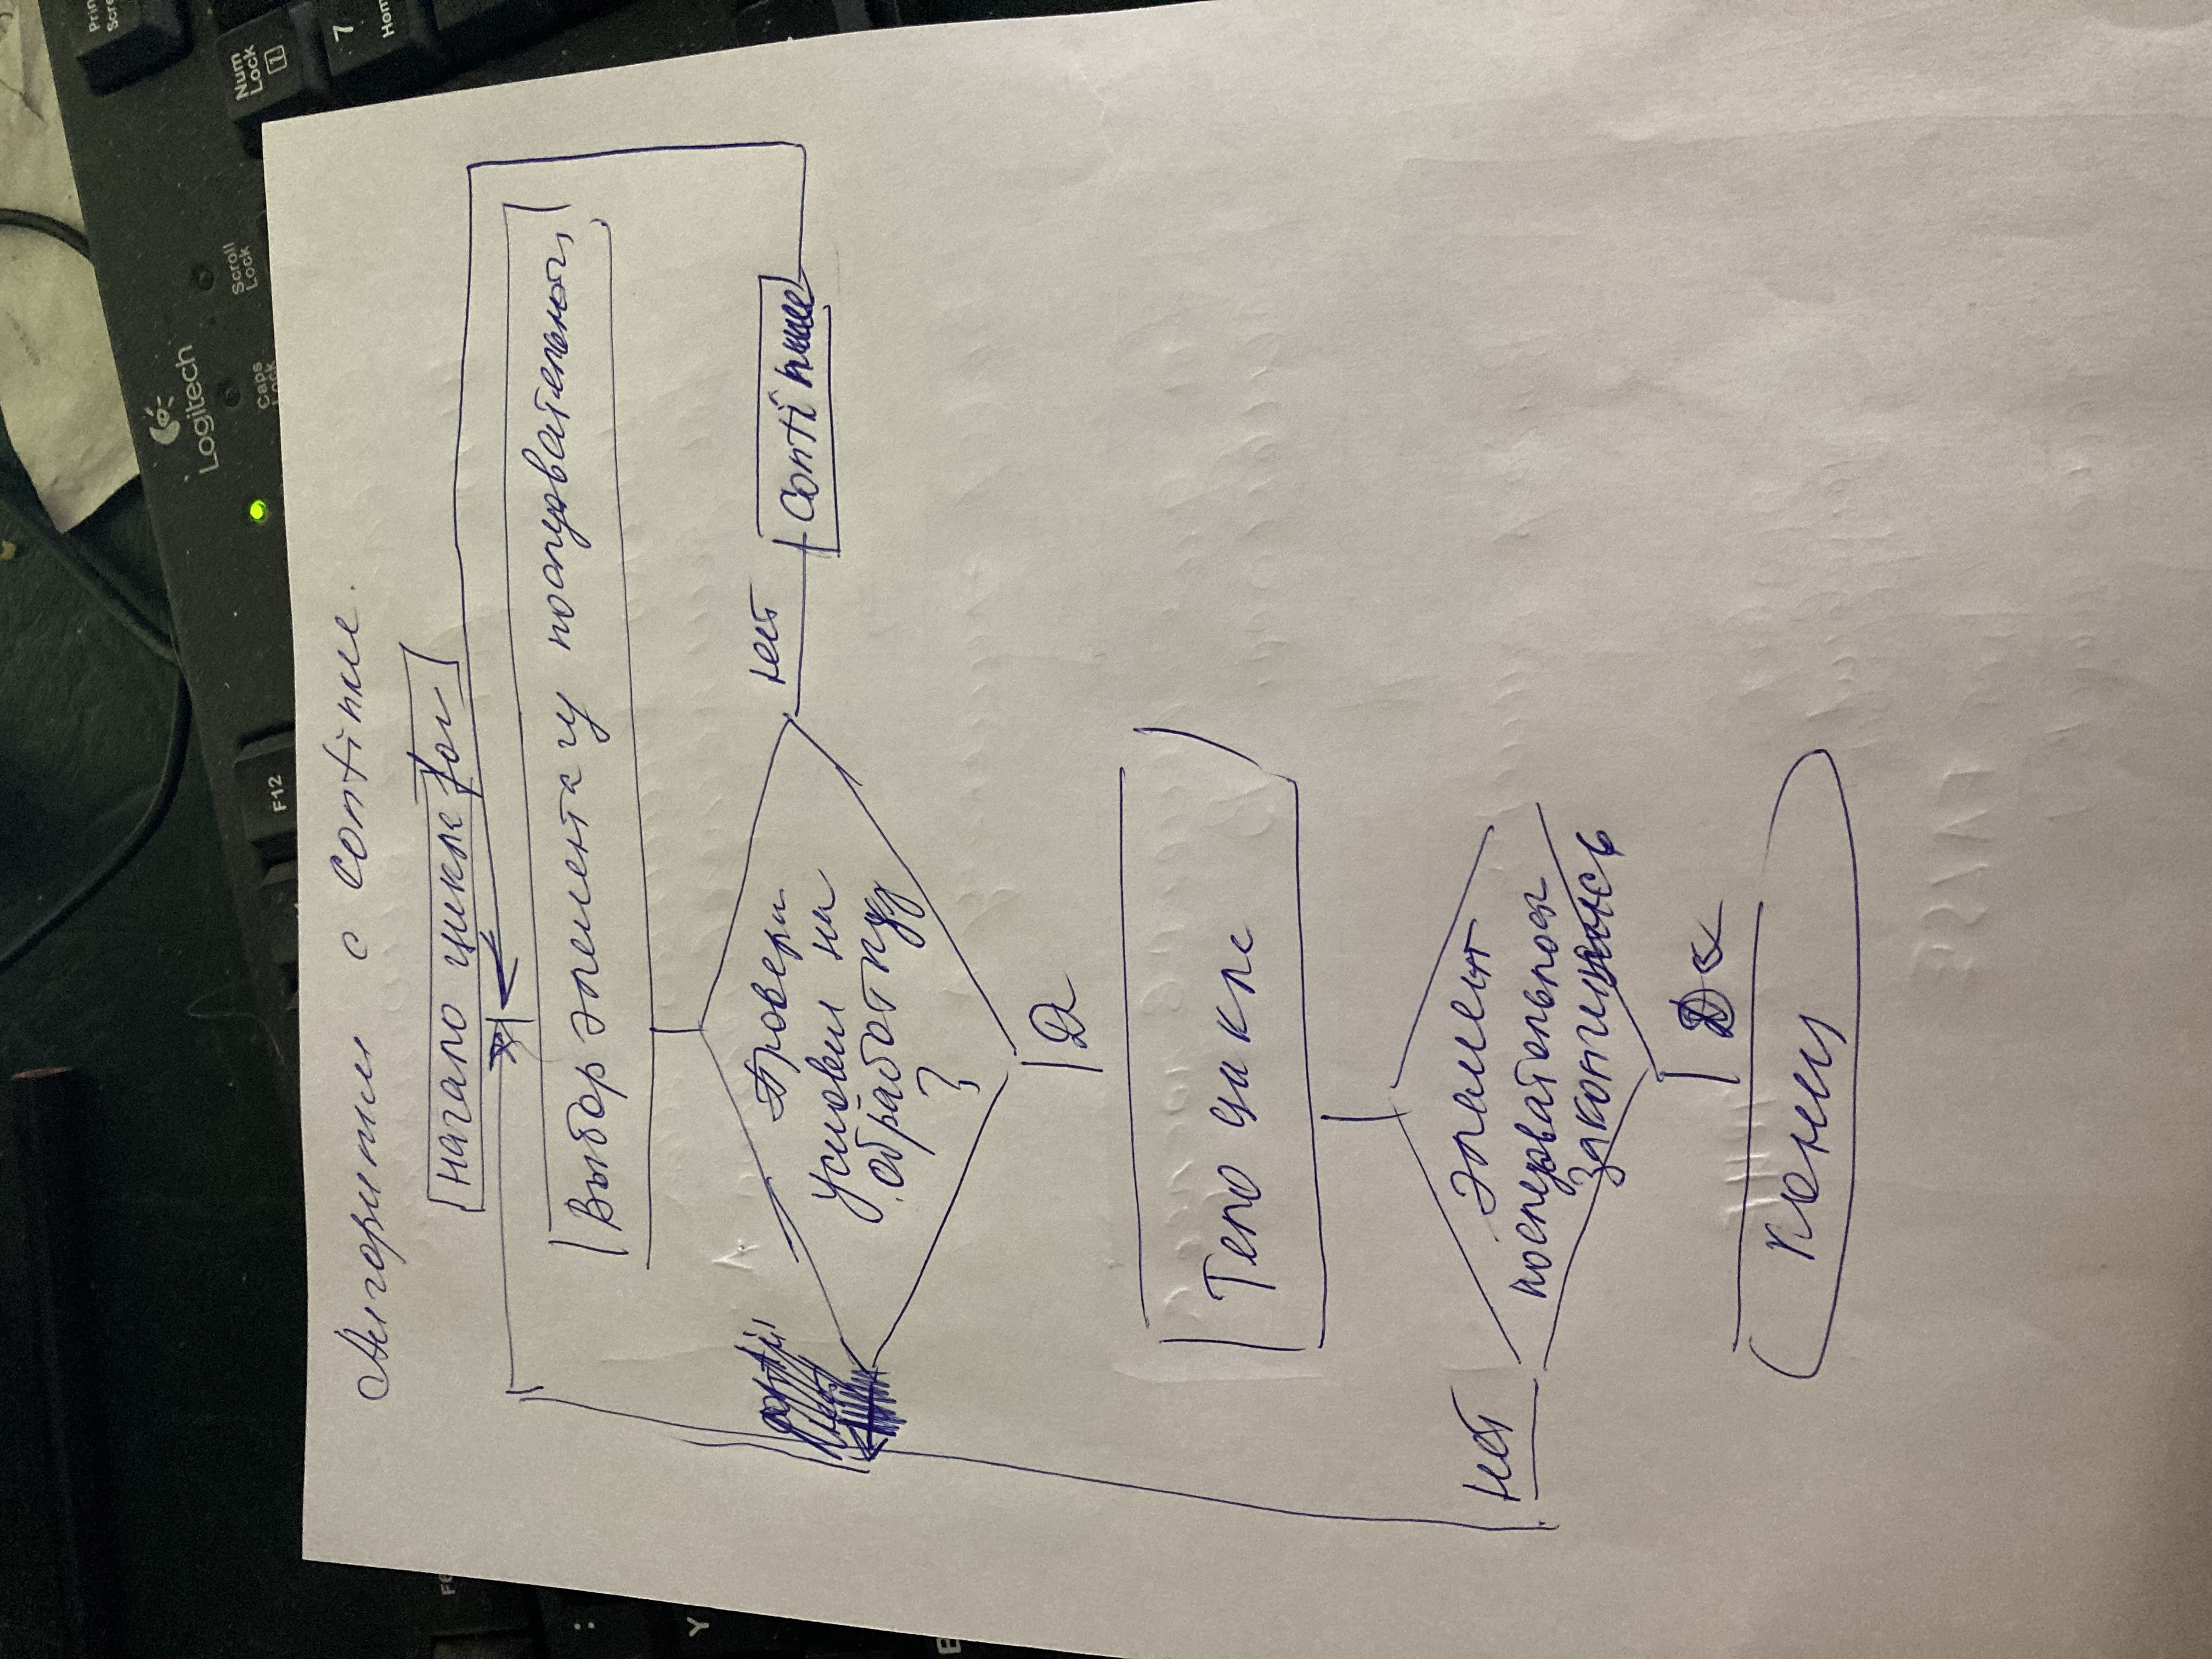 Logitech
Prin
Scre
Caps
Lock
Scroll
Lock
Num
Lock
1
F12
7
Hom
F6
Y
Алгоритм с Continue.
Начало цикла for
Выбор элемента последовательности
Провери
условия на
обработку
?
нет
Continue
Да
Тело цикла
элемент
последовательност
закончились
нет
Да
Конец